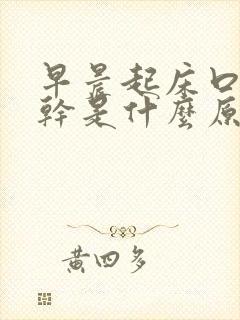 早晨起床口
幹是什麼原
黃四多